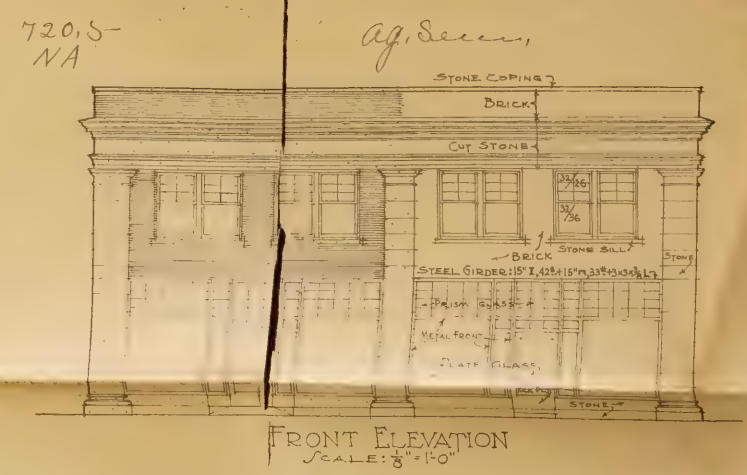 720.5
NA
Ag.
STONE COPING
BRICK
CUT STONE
32/26
32/36
BRICK
STONE SILL
STONE
STEEL GIRDER: 15" I, 42# + 15" 33# + 3x3x3/8 L
PRISM GLASS
METAL FRONT
PLATE GLASS
STONE
FRONT ELEVATION
SCALE: 1/8" = 1'-0"